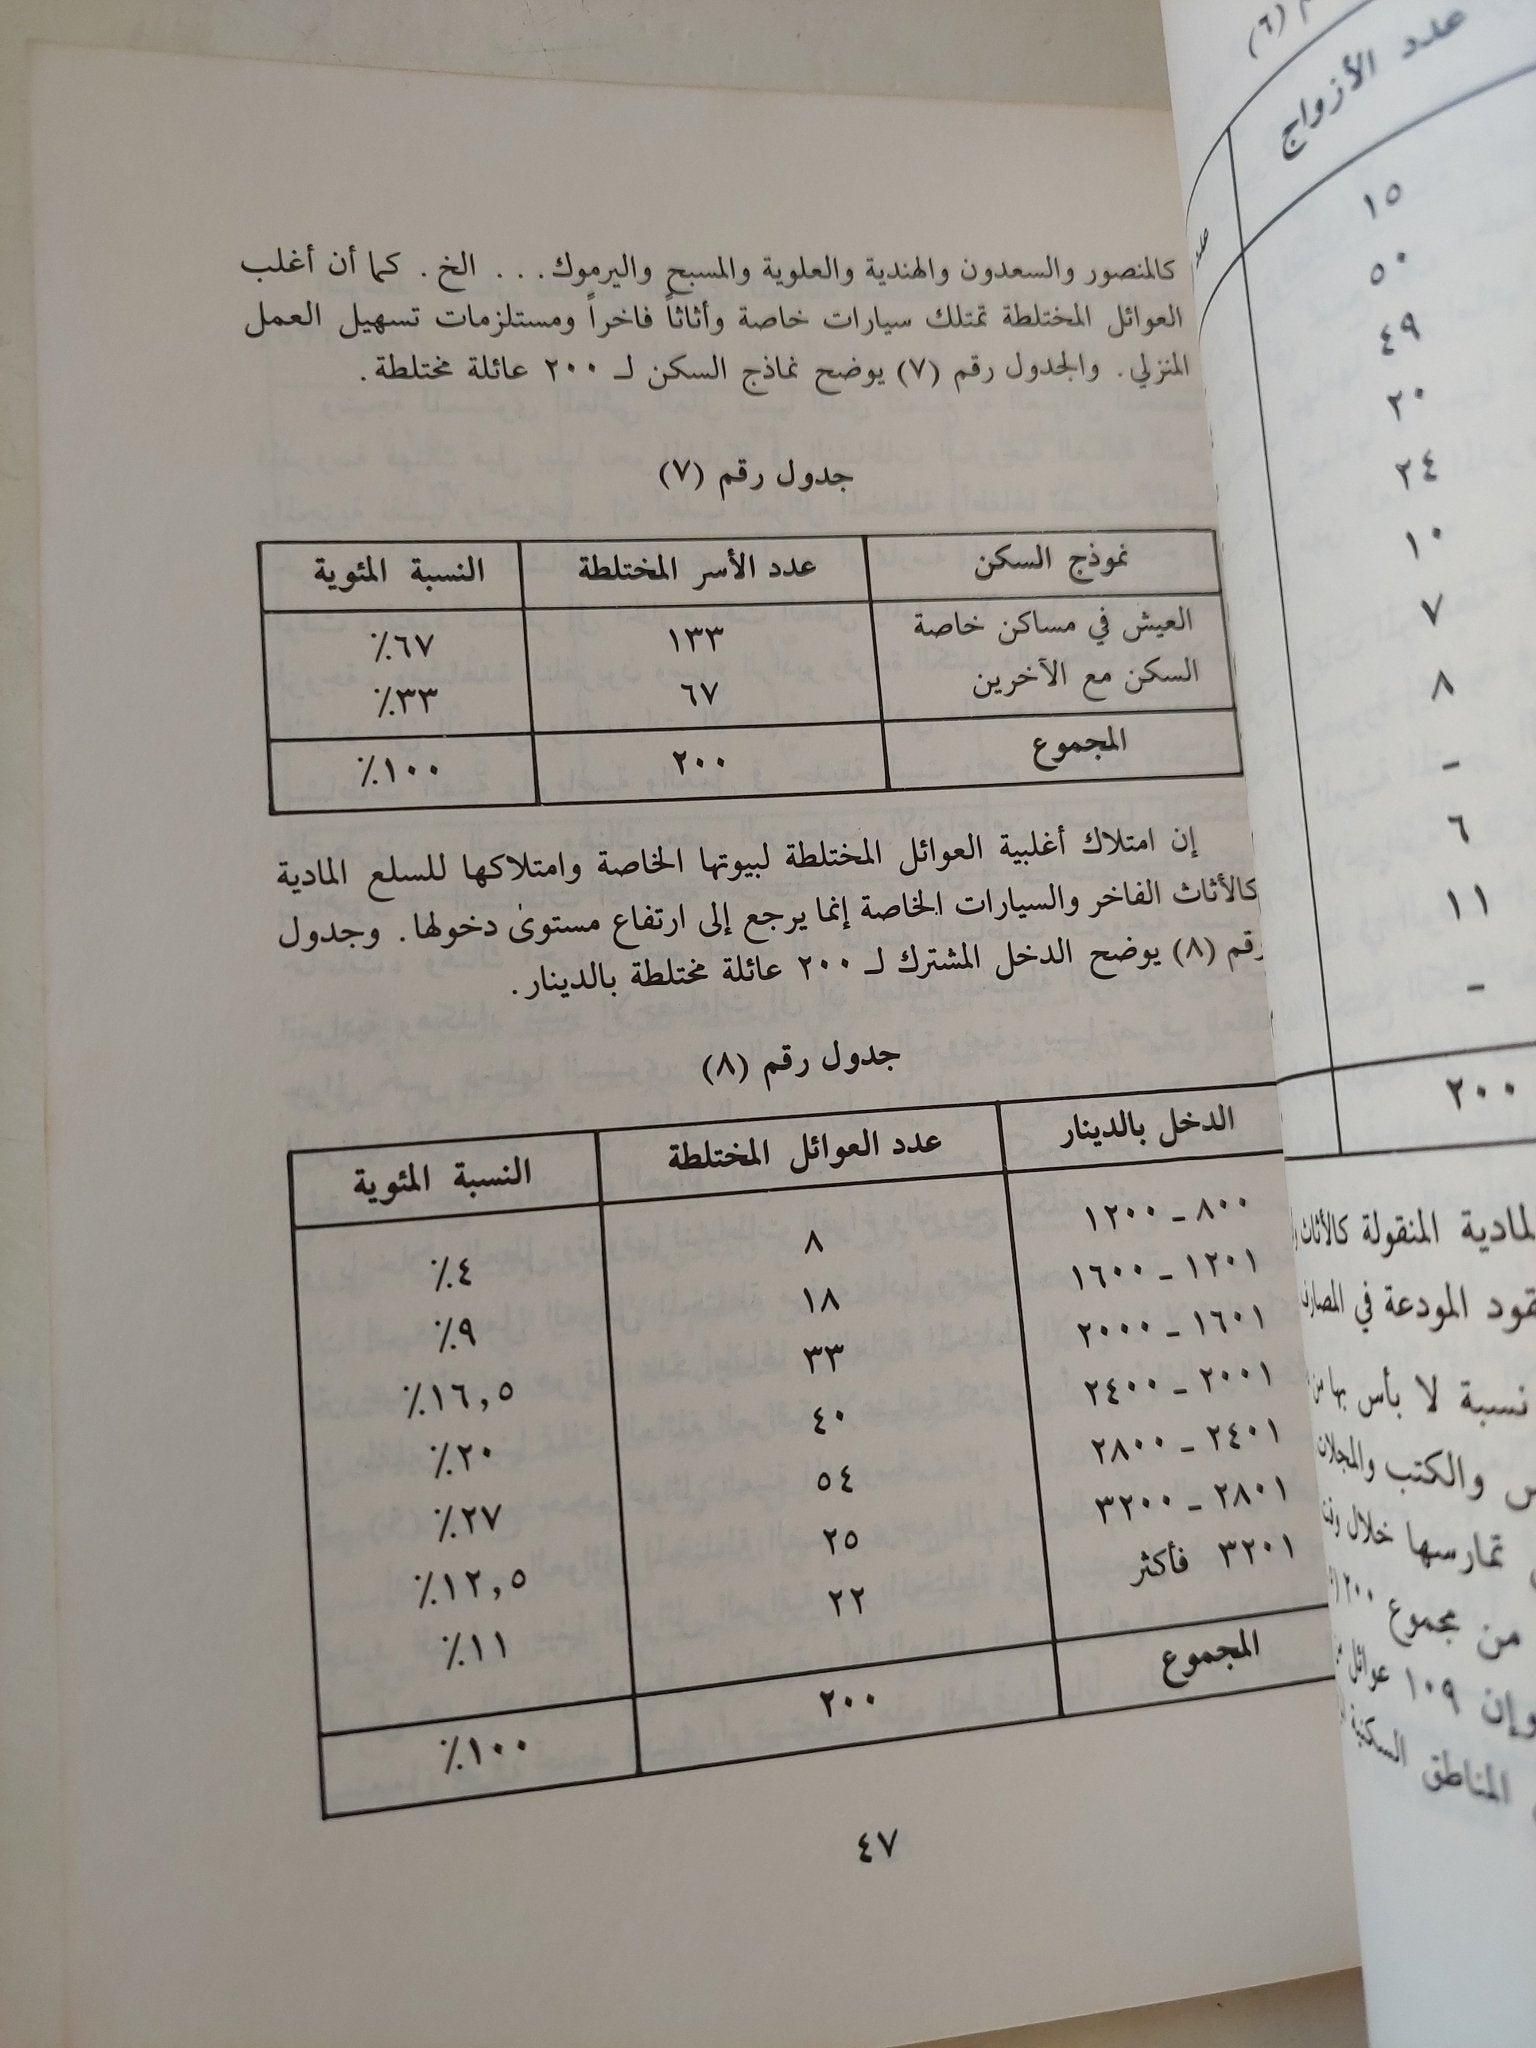 كالمنصور والسعدون والهندية والعلوية والمسبح واليرموك... الخ. كما أن أغلب
العوائل المختلطة تمتلك سيارات خاصة وأثاثاً فاخراً ومستلزمات تسهيل العمل
المنزلي. والجدول رقم (٧) يوضح نماذج السكن لـ ٢٠٠ عائلة مختلطة.
جدول رقم (٧)
نموذج السكن عدد الأسر المختلطة النسبة المئوية
العيش في مساكن خاصة ١٣٣ ٦٧٪
السكن مع الآخرين ٦٧ ٣٣٪
المجموع ٢٠٠ ١٠٠٪
إن امتلاك أغلبية العوائل المختلطة لبيوتها الخاصة وامتلاكها للسلع المادية
كالأثاث الفاخر والسيارات الخاصة إنما يرجع إلى ارتفاع مستوىٰ دخولها. وجدول
رقم (٨) يوضح الدخل المشترك لـ ٢٠٠ عائلة مختلطة بالدينار.
جدول رقم (٨)
الدخل بالدينار عدد العوائل المختلطة النسبة المئوية
٨٠٠ - ١٢٠٠ ٨ ٤٪
١٢٠١ - ١٦٠٠ ١٨ ٩٪
١٦٠١ - ٢٠٠٠ ٣٣ ١٦,٥٪
٢٠٠١ - ٢٤٠٠ ٤٠ ٢٠٪
٢٤٠١ - ٢٨٠٠ ٥٤ ٢٧٪
٢٨٠١ - ٣٢٠٠ ٢٥ ١٢,٥٪
٣٢٠١ فأكثر ٢٢ ١١٪
المجموع ٢٠٠ ١٠٠٪
٤٧
(٦)
عدد الأزواج
١٥
٥٠
٤٩
٢٠
٢٤
١٠
٧
٨
-
٦
١١
-
٢٠٠
المنقولة كالأثاث
المودعة في
نسبة لا بأس بها من
والكتب والمجلات
تمارسها خلال
من مجموع ٢٠٠
وإن ١٠٩ عوائل
المناطق السكنية